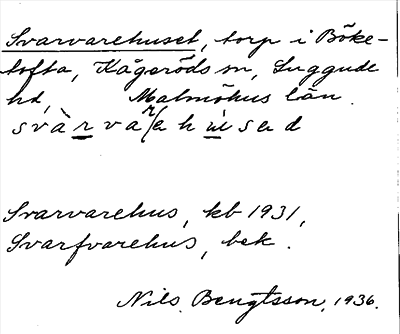 Svarvarehuset, torp i Böke-
tofta, Kågeröds sn, Luggude
hd, Malmöhus län.
Svarvarehus, kb 1931,
Svarfvarehus, bek.
Nils Bengtsson, 1936.